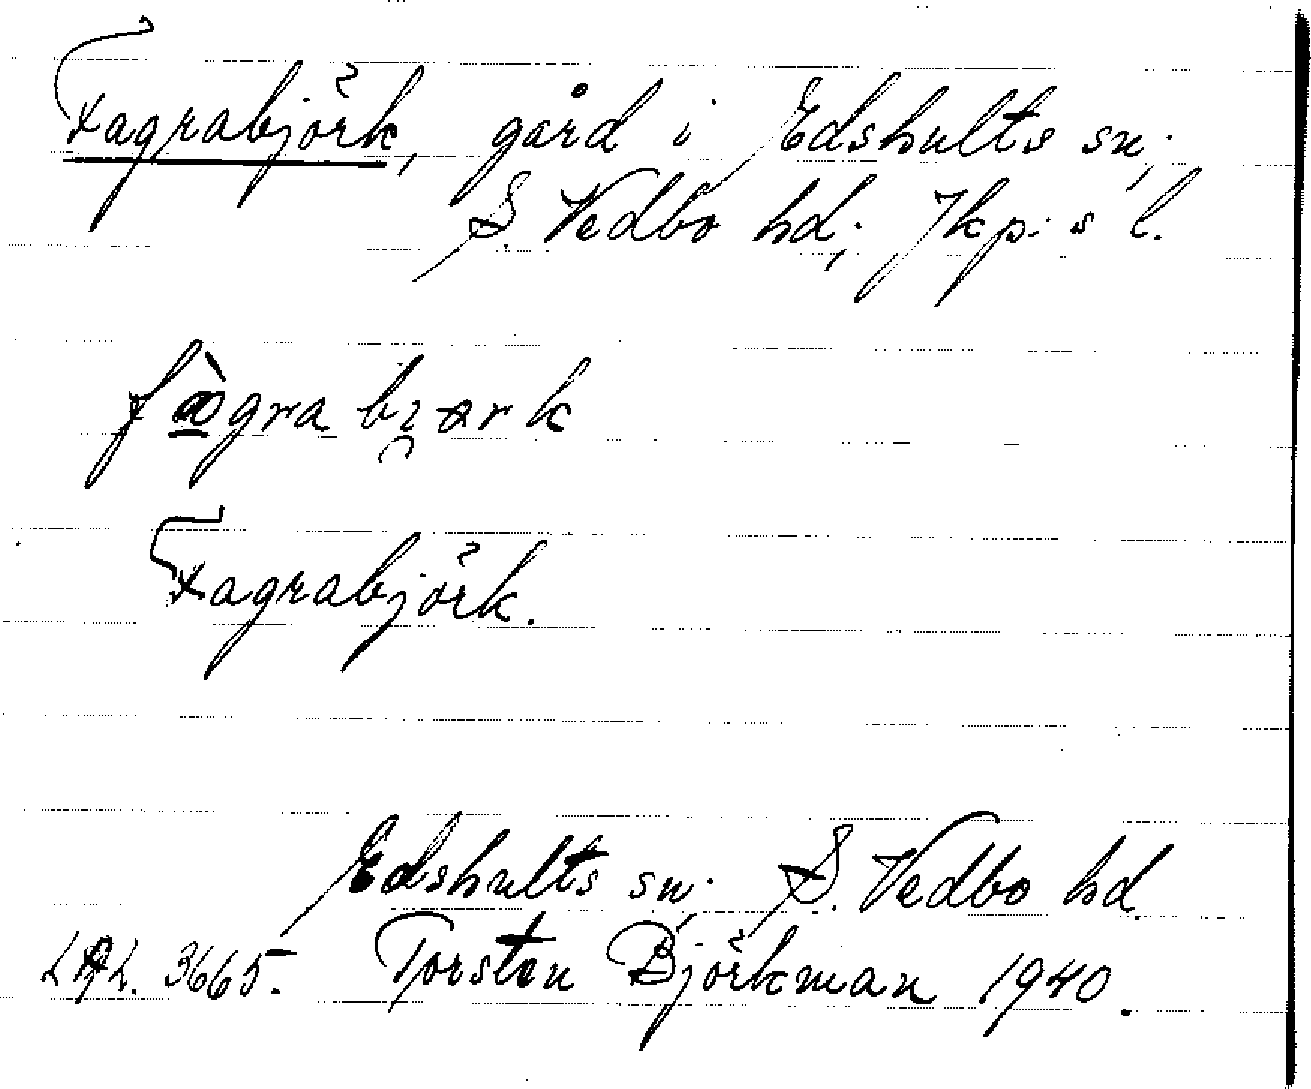 Fagrabjörk, gård i Edshults sn;
S. Vedbo hd; Jkp:s l.
Fagrabjörk.
Edshults sn. S. Vedbo hd
3665. Torsten Björkman 1940.